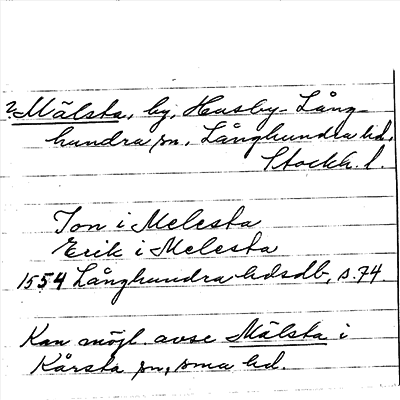 ? Mälsta, by, Husby-Lång-
hundra sn, Långhundra hd,
Stockh. l.
Jon i Melesta
Erik i Melesta
1554 Långhundra hdsdb, s. 74.
Kan möjl. avse Mälsta i
Kårsta sn, sma hd.